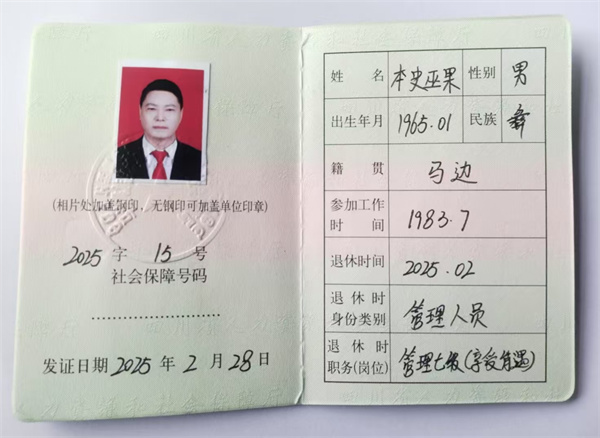 (相片处加盖钢印，无钢印可加盖单位印章)
2025 字 15 号
社会保障号码
发证日期 2025 年 2 月 28 日
姓名 本史巫果 性别 男
出生年月 1965.01 民族 彝
籍贯 马边
参加工作时间 1983.7
退休时间 2025.02
退休时身份类别 管理人员
退休时职务(岗位) 管理七级(享受待遇)